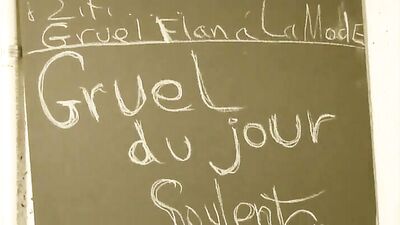 Ziti
Gruel Flan á La Mode
Gruel
du jour
Soylent